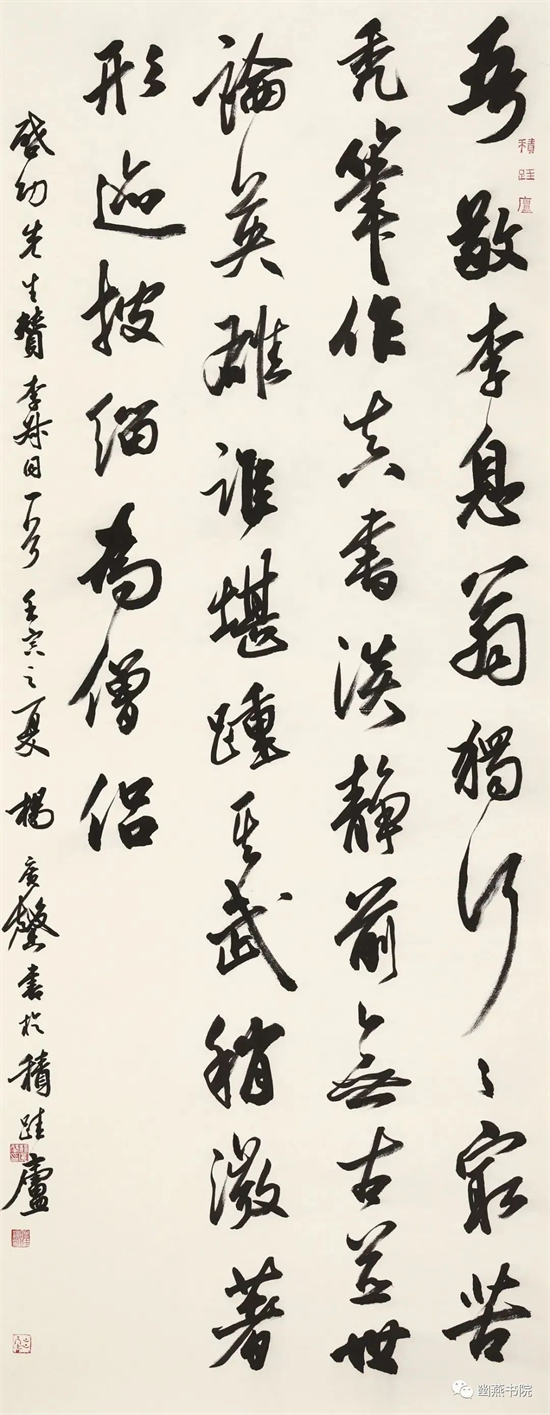 積跬廬
吾敬李息翁獨行々最苦
禿筆作真書淡靜前無古並世
論英雄誰堪踵其武稍微著
形迹披緇為僧侶
啓功先生贊李叔同一首 壬寅之夏 楊广馨書於積跬廬
幽燕书院